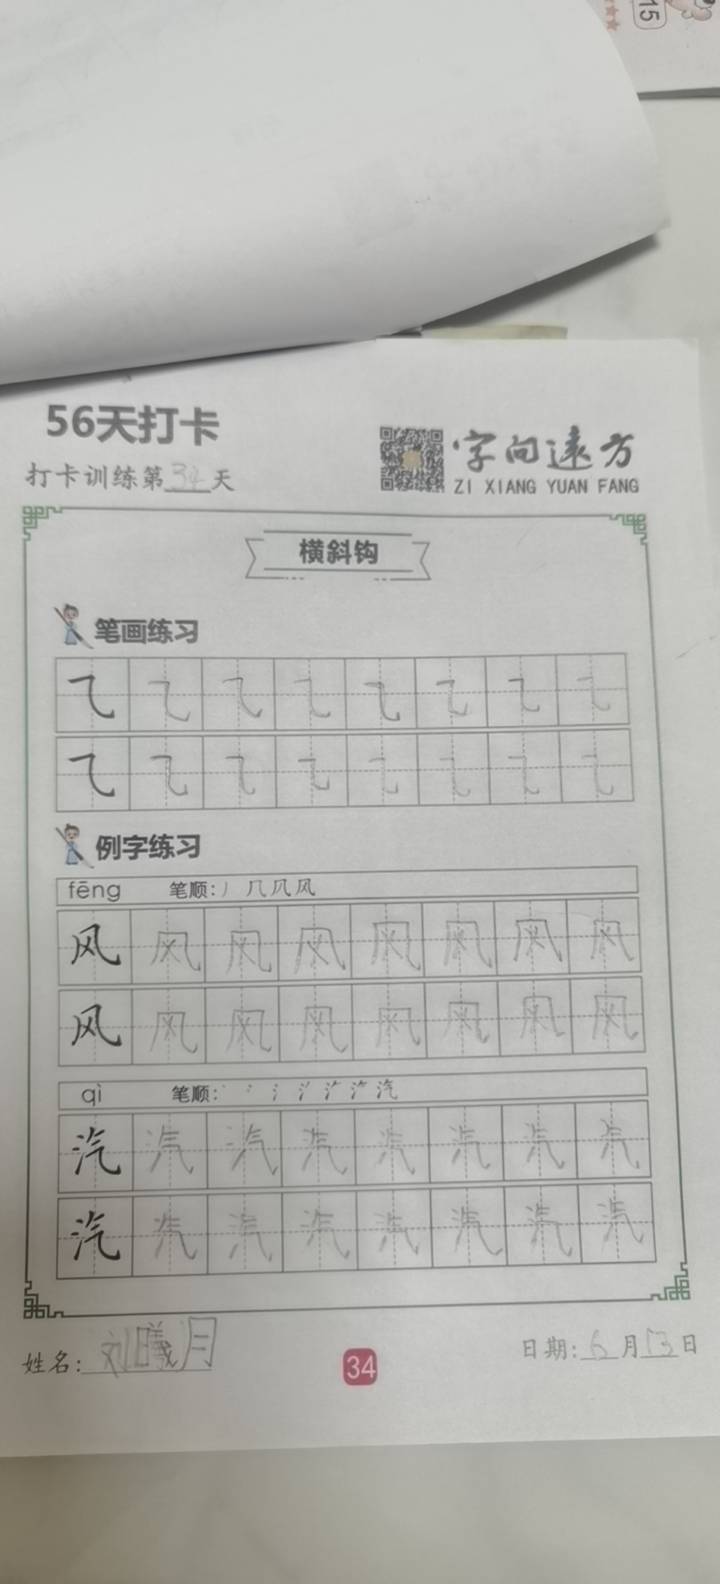 15
56天打卡
打卡训练第34天
字向远方
ZI XIANG YUAN FANG
横斜钩
笔画练习
⺄ ⺄ ⺄ ⺄ ⺄ ⺄ ⺄ ⺄
⺄ ⺄ ⺄ ⺄ ⺄ ⺄ ⺄ ⺄
例字练习
fēng 笔顺: 丿 几 凤 风
风 风 风 风 风 风 风 风
风 风 风 风 风 风 风 风
qì 笔顺: 丶 冫 氵 汽
汽 汽 汽 汽 汽 汽 汽 汽
汽 汽 汽 汽 汽 汽 汽 汽
姓名: 刘曦月
34
日期: 6月13日